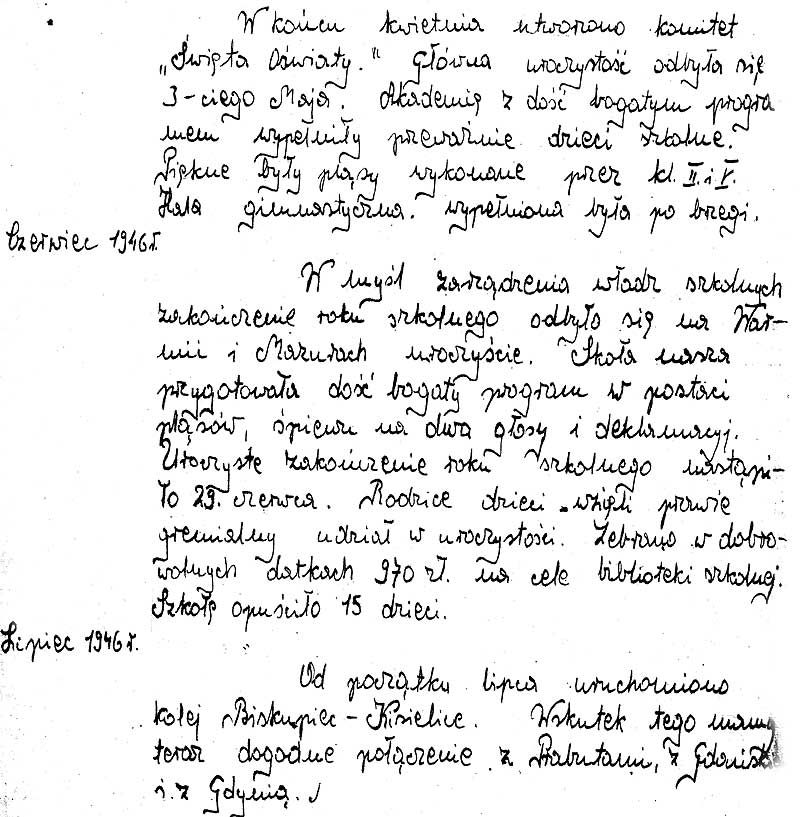 W końcu kwietnia utworzono komitet
„Święta Oświaty." Główna uroczystość odbyła się
3-ciego Maja. Akademię z dość bogatym progra
mem wypełniły przeważnie dzieci szkolne.
Piękne były pląsy wykonane przez kl. II. i V.
Hala gimnastyczna. wypełniona była po brzegi.
Czerwiec 1946 r.
W myśl zarządzenia władz szkolnych
zakończenie roku szkolnego odbyło się na War-
mii i Mazurach uroczyście. Skoła nasza
przygotowała dość bogaty program w postaci
pląsów, śpiewu na dwa głosy i deklamacyj.
Uroczyste zakończenie roku szkolnego nastąpi-
ło 29. czerwca. Rodzice dzieci wzięli prawie
gremialny udział w uroczystości. Zebrano w dobro-
wolnych datkach 970 zł. na cele biblioteki szkolnej.
Szkołę opuściło 15 dzieci.
Lipiec 1946 r.
Od początku lipca uruchomiono
kolej Biskupiec - Kisielice. Wskutek tego mamy
teraz dogodne połączenie z Prabutami, z Gdańsk
i z Gdynią.